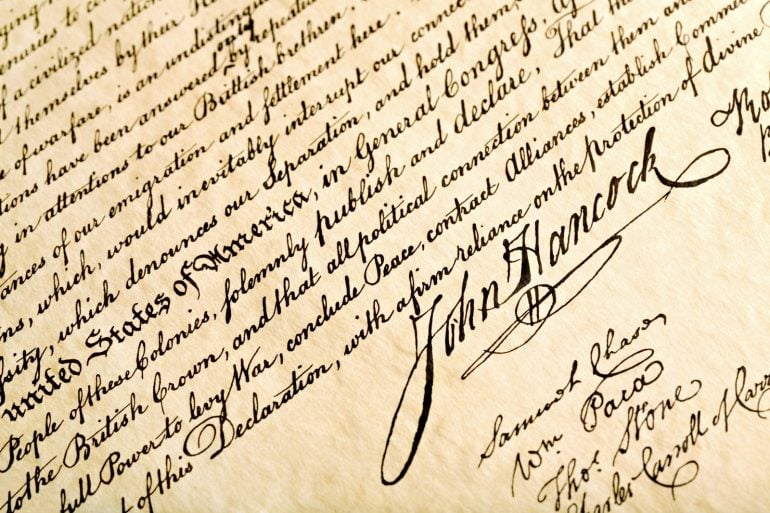 naries to
of a civilized nation
themselves by their
of warfare, is an undistinguished
tions have been answered only by repeated
g in attentions to our Brittish brethren.
ances of our emigration and ſettlement here.
ns, which, would inevitably interrupt our connec
ſsity, which denounces our Separation, and hold them
united States of America, in General Congress,
People of these Colonies, ſolemnly publish and declare, That
to the British Crown, and that all political connection between them and
full Power to levy War, conclude Peace, contract Alliances, establish Comme
of this Declaration, with a firm reliance on the protection of divine
John Hancock
Samuel Chase
Wm. Paca
Thos. Stone
Charles Carroll of Carr